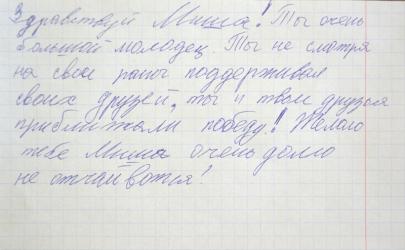 Здравствуй Миша! Ты очень
большой молодец. Ты не смотря
на свои раны поддерживал
своих друзей, ты и твои друзья
приближали победу! Желаю
тебе Миша очень долго
не отчаиватся!